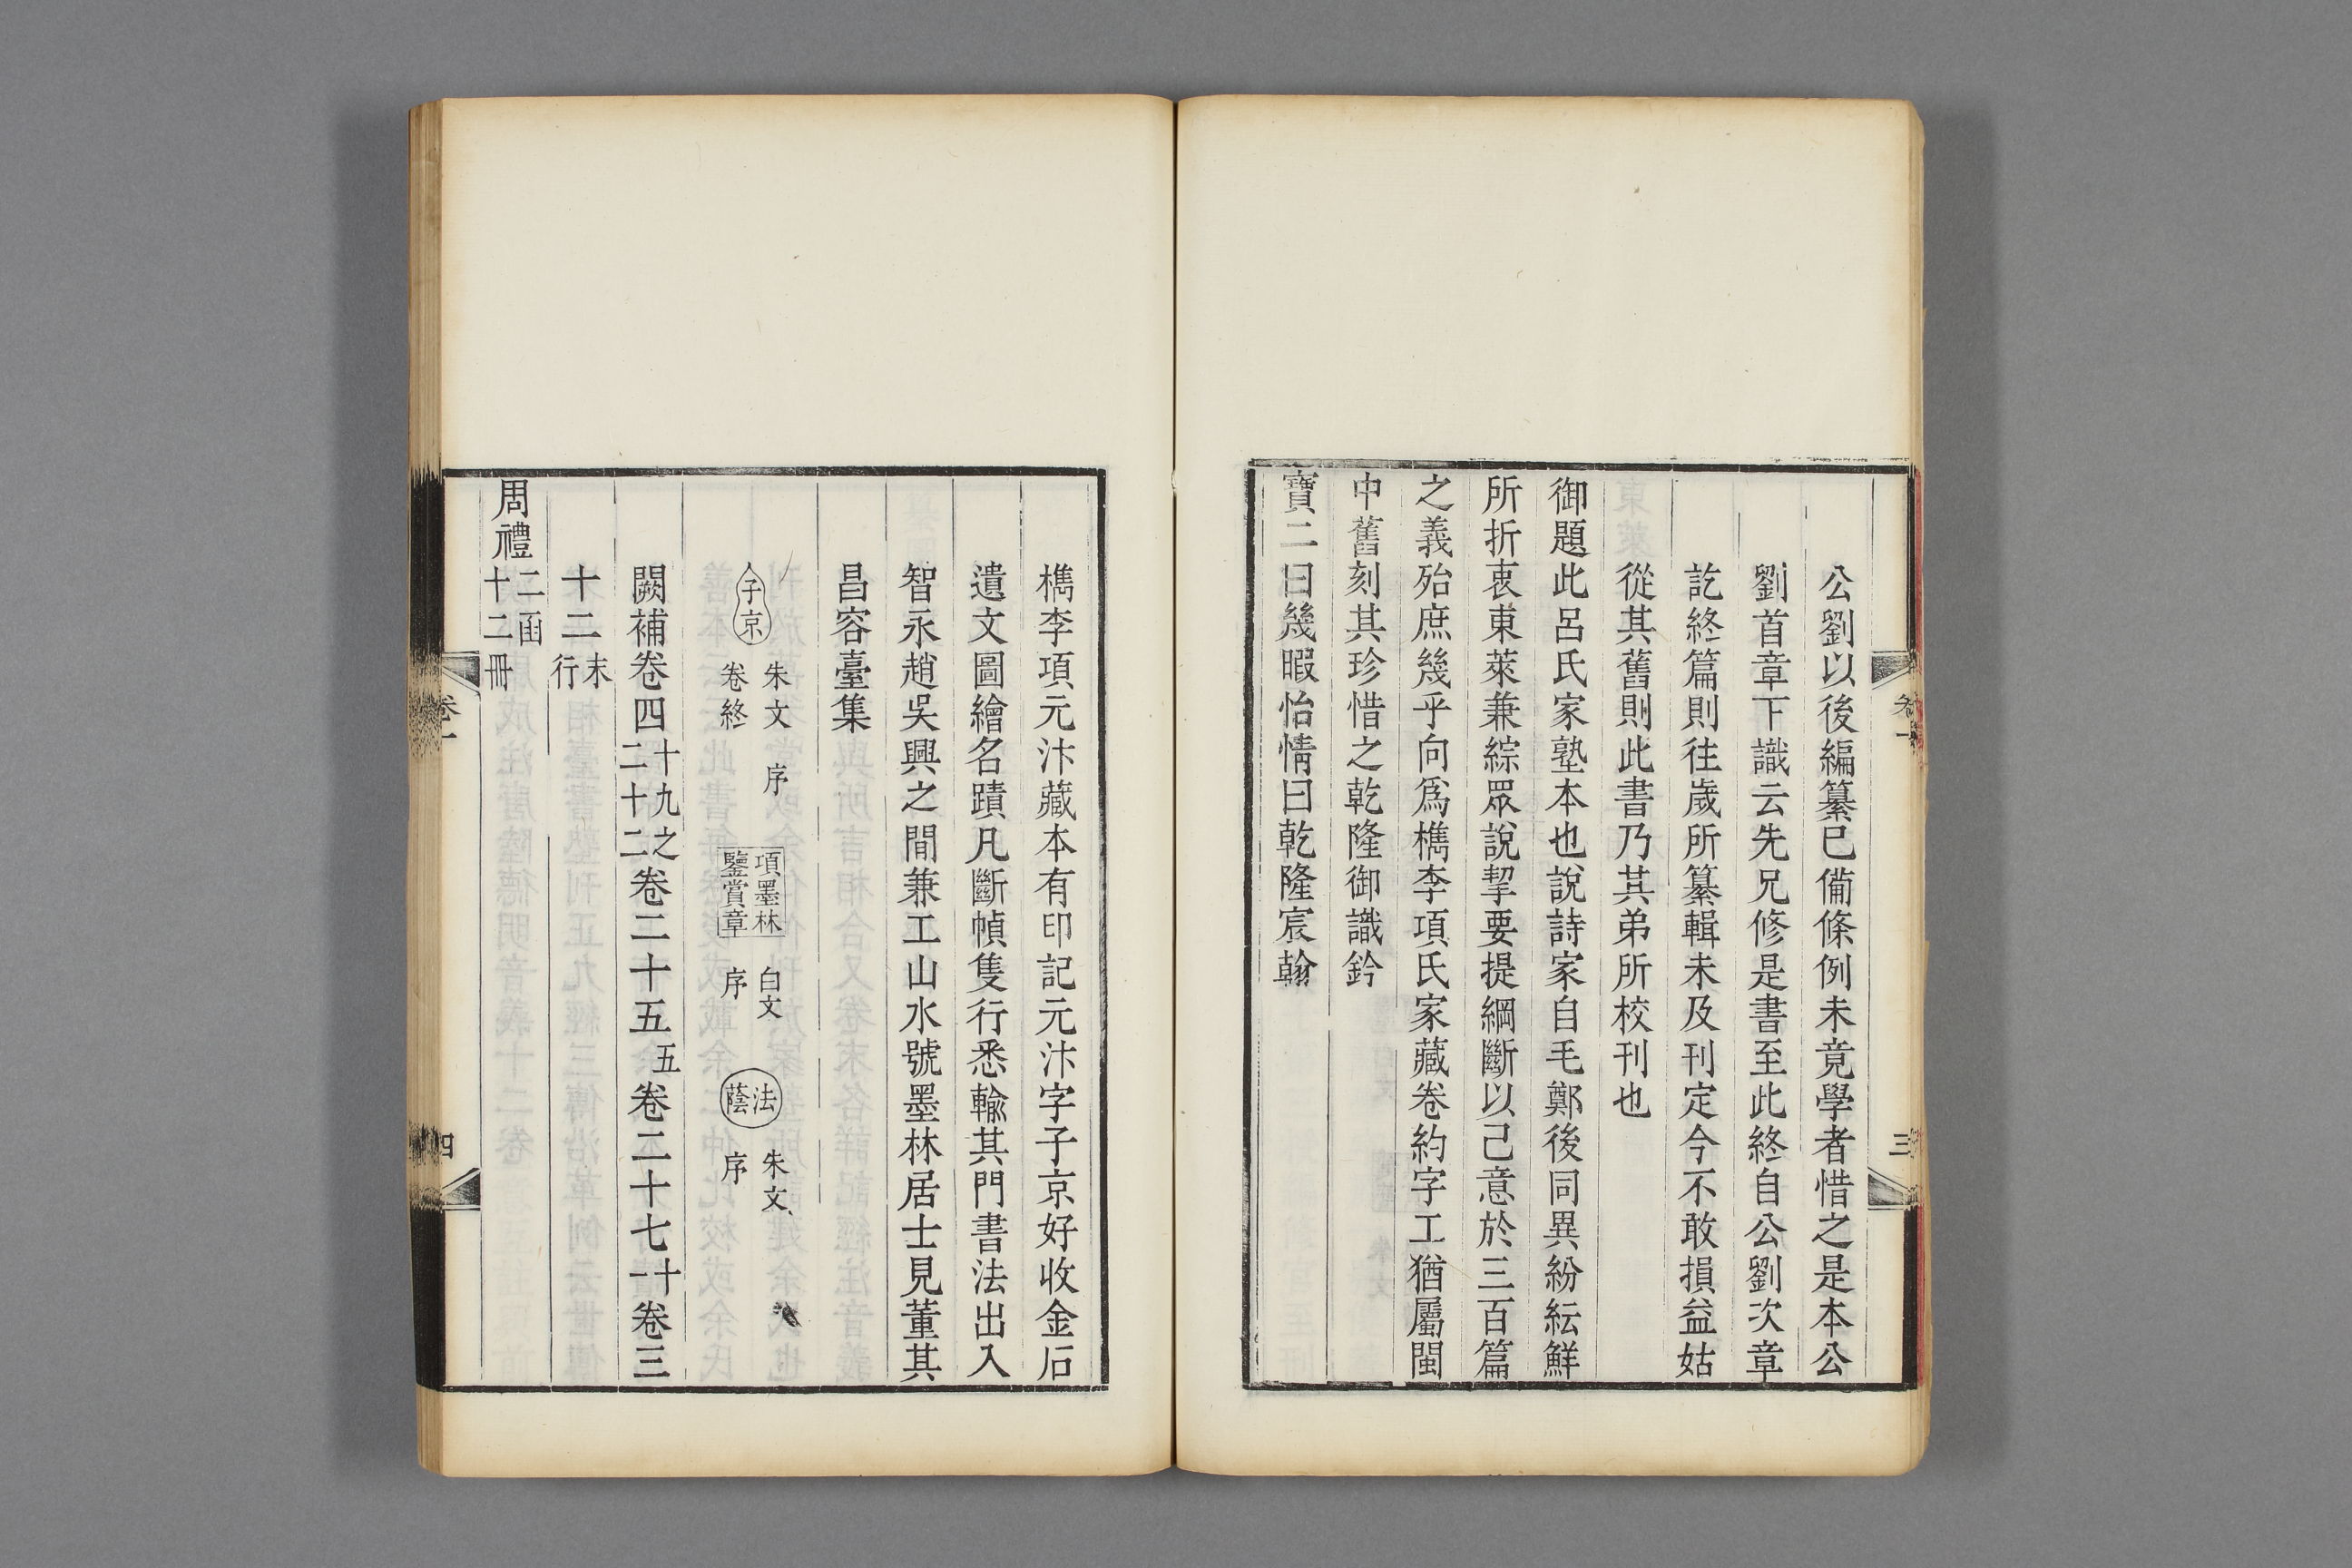 公劉以後編纂已備條例未竟學者惜之是本公
劉首章下識云先兄修是書至此終自公劉次章
訖終篇則往歲所纂輯未及刊定今不敢損益姑
從其舊則此書乃其弟所校刊也
御題此呂氏家塾本也說詩家自毛鄭後同異紛紜鮮
所折衷東萊兼綜眾說挈要提綱斷以己意於三百篇
之義殆庶幾乎向爲檇李項氏家藏卷約字工猶屬閩
中舊刻其珍惜之乾隆御識鈐
寶二曰幾暇怡情曰乾隆宸翰
卷一
三
檇李項元汴藏本有印記元汴字子京好收金石
遺文圖繪名蹟凡斷幀隻行悉輸其門書法出入
智永趙吳興之間兼工山水號墨林居士見董其
昌容臺集
子京
朱文 序
卷終
項墨林
鑒賞章
白文
序
法蔭
朱文
序
闕補卷四十九之二十二卷二十五五卷二十七十一卷三
十二末行
周禮二函十二冊
卷一
四